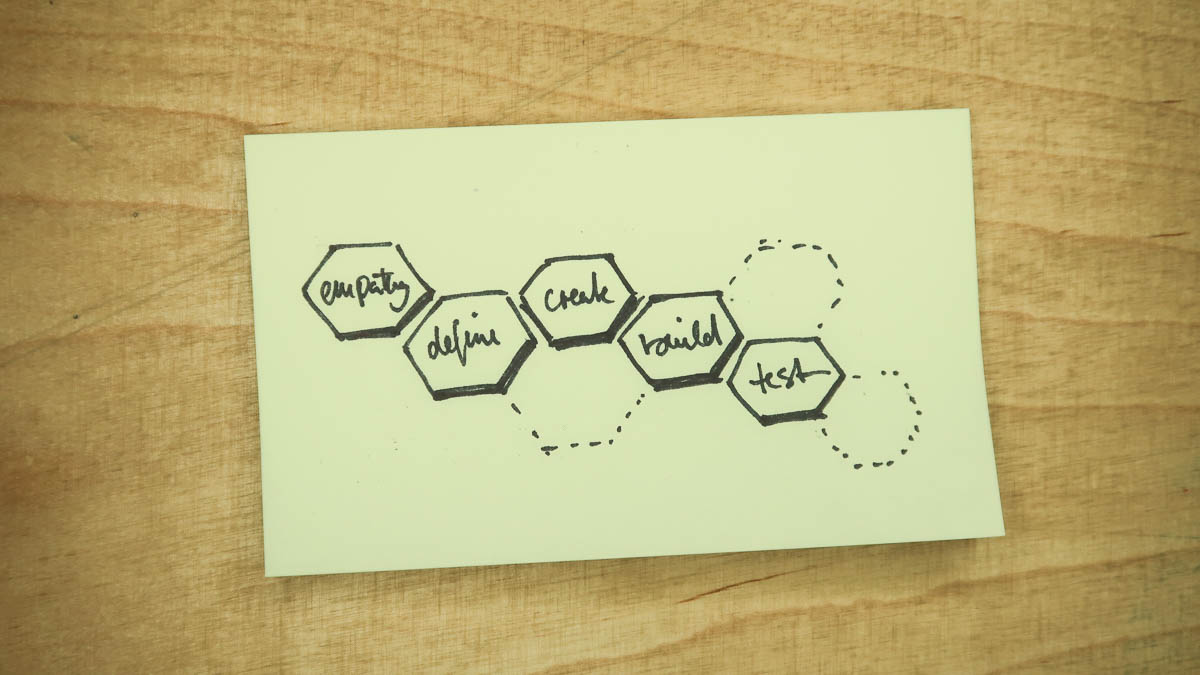 empathy
define
create
build
test